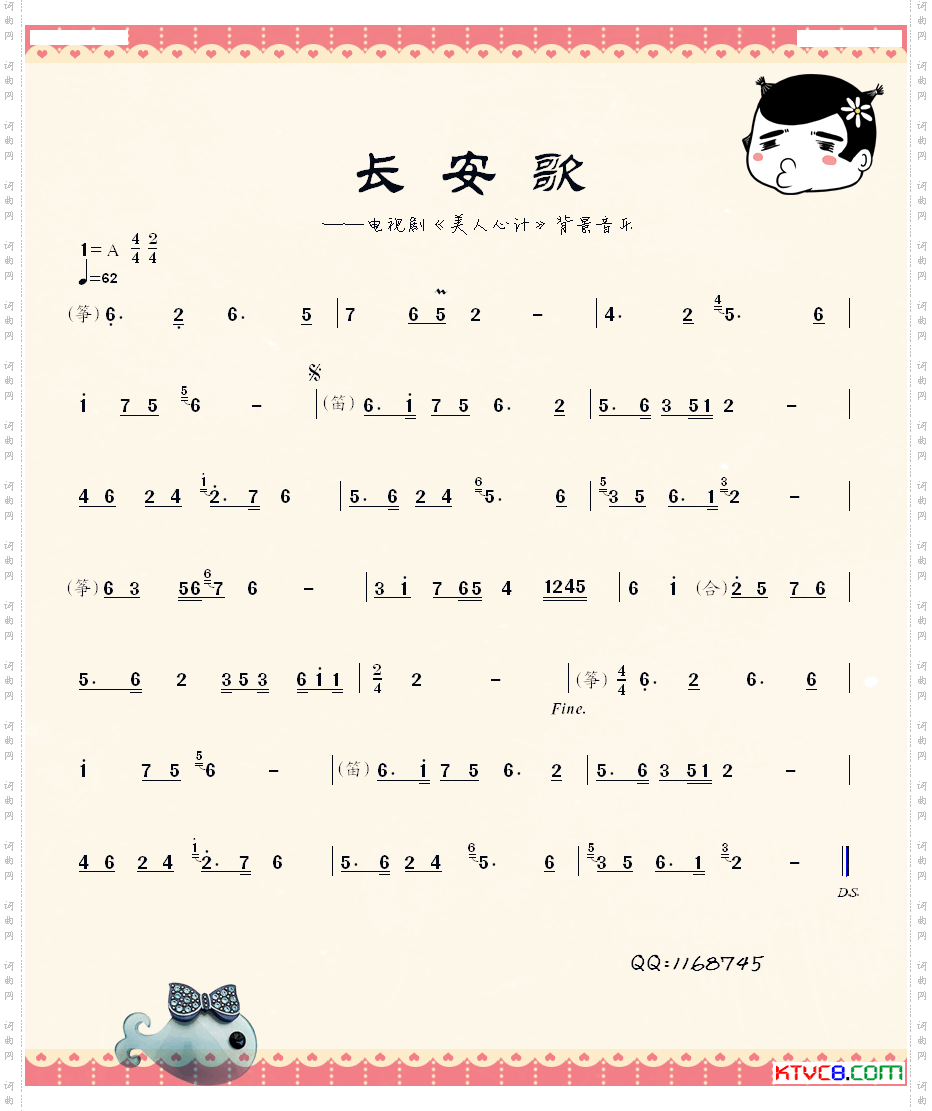 长安歌
——电视剧《美人心计》背景音乐
1=A 4/4 2/4
♩=62
(筝) 6. 2 6. 5 | 7 6 5 2 - | 4. 2 4 5. 6 |
1 7 5 5 6 - | (笛) 6. 1 7 5 6. 2 | 5. 6 3 5 1 2 - |
4 6 2 4 1 2. 7 6 | 5. 6 2 4 6 5. 6 | 5 3 5 6. 1 3 2 - |
(筝) 6 3 5 6 6 7 6 - | 3 1 7 6 5 4 1 2 4 5 | 6 1 (合) 2 5 7 6 |
5. 6 2 3 5 3 6 1 1 | 2/4 2 - | (筝) 4/4 6. 2 6. 6 |
Fine.
1 7 5 5 6 - | (笛) 6. 1 7 5 6. 2 | 5. 6 3 5 1 2 - |
4 6 2 4 1 2. 7 6 | 5. 6 2 4 6 5. 6 | 5 3 5 6. 1 3 2 - ||
D.S.
QQ:1168745
KTVC8.COM
词曲网